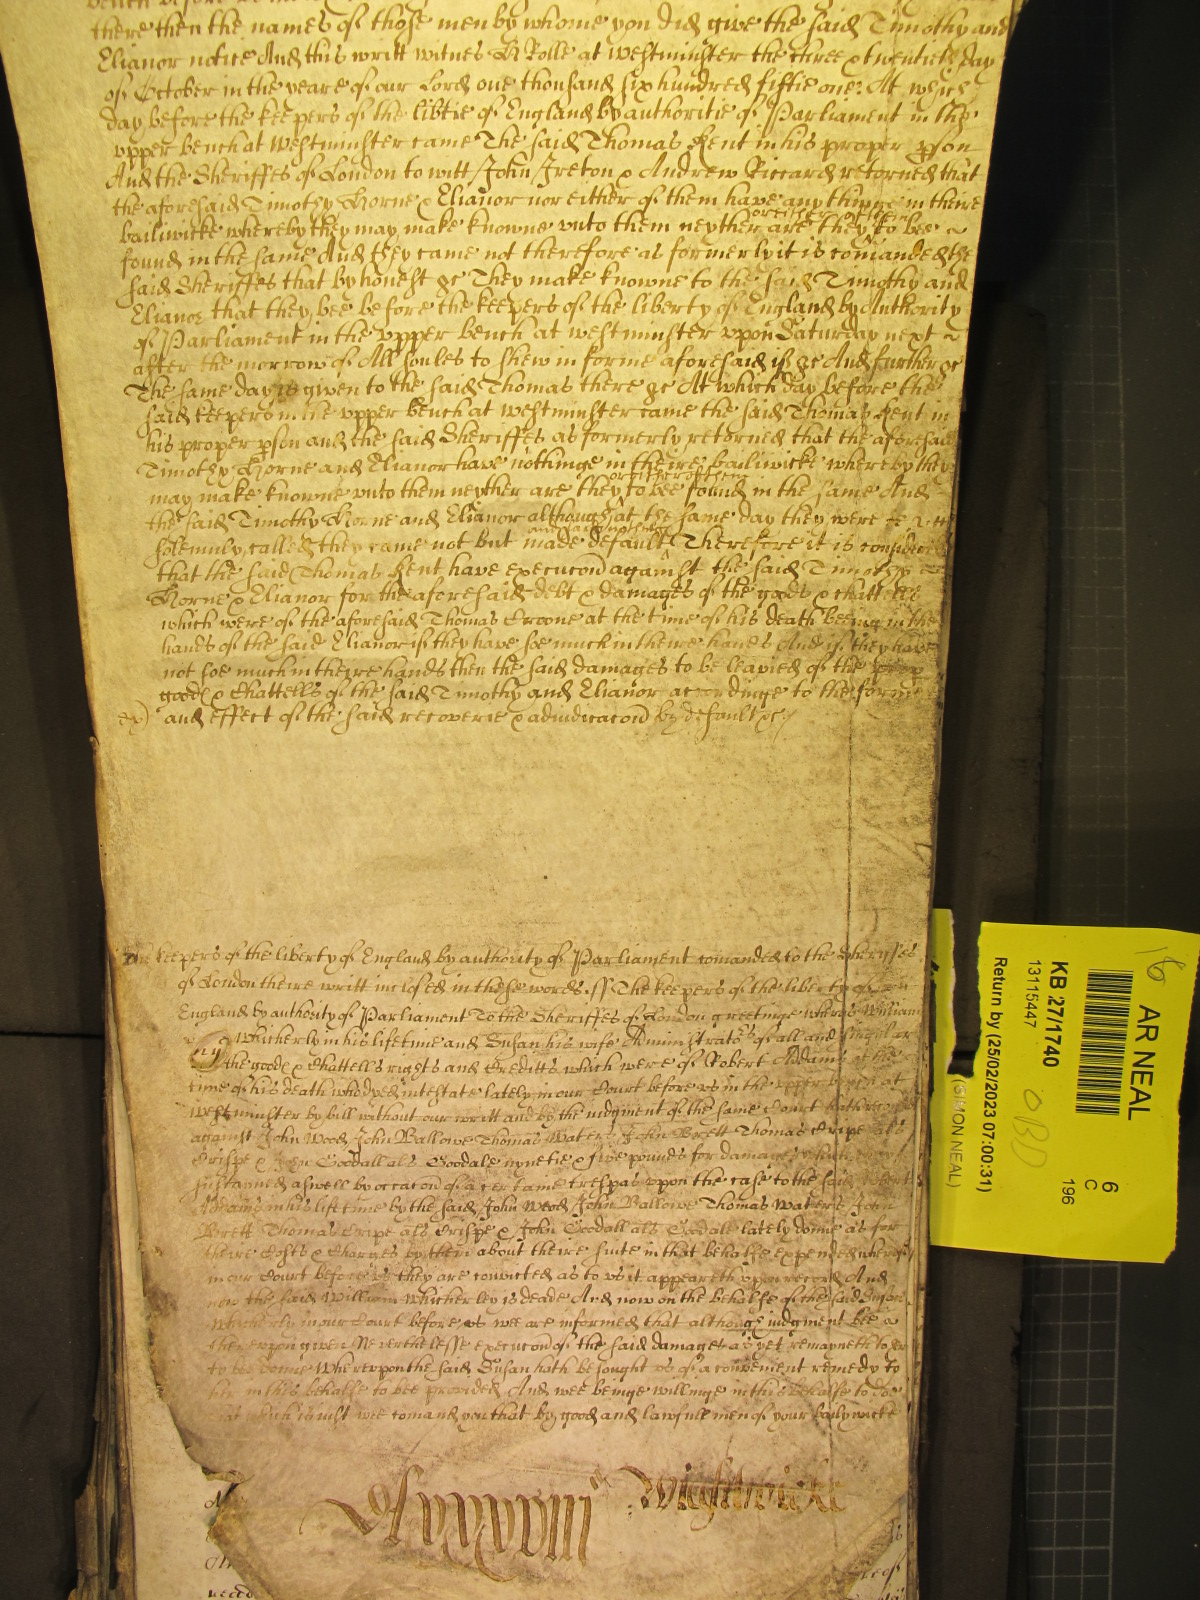 there then the names of those men by whome you did give the said Timothy and
Elianor notice And this writt witnes H Rolle at Westminster the three & twentieth day
of October in the yeare of our Lord one thousand six hundred fiftie one. At which
day before the keepers of the libtie of England by authoritie of Parliament in the
upper bench at Westminster came The said Thomas Kent in his proper pson
And the Sheriffes of London to witt John Ireton & Andrew Riccard retorned that
the aforesaid Timothy Horne & Elianor nor either of them have any thinge in theire
bailiwicke whereby they may make knowne unto them neyther are they or either of them to bee
found in the same And they came not therefore as formerly it is comanded the
said Sheriffes that by honest &c They make knowne to the said Timothy and
Elianor that they bee before the keepers of the liberty of England by Authority
of Parliament in the upper bench at Westminster upon Saturday next
after the morrow of All soules to shew in forme aforesaid if &c And further &c
The same day is given to the said Thomas there &c At which day before the
said keepers in the upper bench at Westminster came the said Thomas Kent in
his proper pson and the said Sheriffes as formerly retorned that the aforesaid
Timothy Horne and Elianor have nothinge in theire bailiwicke whereby they
may make knowne unto them neyther are they or either of them to bee found in the same And
the said Timothy Horne and Elianor although at the same day they were
solemnly called they came not but made default Therefore it is considered
that the said Thomas Kent have execucon against the said Timothy
Horne & Elianor for the aforesaid debt & damages of the goods & chattells
which were of the aforesaid Thomas Croone at the time of his death beeing in the
hands of the said Elianor if they have soe much in theire hands And if they have
not soe much in theire hands then the said damages to be leavied of the
goods & Chattells of the said Timothy and Elianor accordinge to the forme
ex) and effect of the said recoverie & adiudicacon by default &c
The keepers of the liberty of England by authority of Parliament comanded to the Sheriffes
of London theire writt inclosed in these words. ss. The keepers of the liberty of
England by authority of Parliament To the Sheriffes of London greetinge whereas William
Whicherly in his lifetime and Susan his wife Administrators of all and singular
the goods & Chattells rights and Creditts which were of Robert Addams at the
time of his death who dyed intestate lately in our Court before us in the upper bench at
Westminster by bill without our writt and by the iudgment of the same Court
against John Wood John Ballowe Thomas Waters John Brett Thomas Cripe als
Crispe & John Goodall als Goodale nynetie & five pounds for damages
sustained aswell by occacon of a certaine trespas upon the case to the said Robert
Addams in his life time by the said John Wood John Ballowe Thomas Waters John
Brett Thomas Cripe als Crispe & John Goodall als Goodale lately donne as for
theire Costs & Charges by them about theire suite in that behalfe expended whereof
in our Court before us they are convicted as to us it appeareth upon record And
now the said William Whicherley is deade And now on the behalfe of the said Susan
Whicherly in our Court before us we are informed that although iudgment bee
thereupon given Neverthelesse execucon of the said damages as yet remayneth to her
to bee donne Whereupon the said Susan hath besought us of a convenient remedy to
her in this behalfe to bee provided And wee beinge willinge in this behalfe to doe
that which is iust wee comand you that by good and lawfull men of your bailywicke
Wightwicke
16
AR NEAL
KB 27/1740
13115447
Return by (25/02/2023 07:00:31)
(SIMON NEAL)
OBD
6
C
196